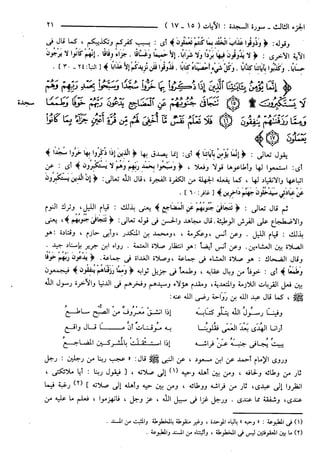 الجزء الثالث - سورة السجدة : الآيات ( ١٥ - ١٧ ) ٢١
وقوله : ﴿ وَذُوقُوا عَذَابَ الْخُلْدِ بِمَا كُنْتُمْ تَعْمَلُونَ ﴾ أي : بسبب كفركم وتكذيبكم ، كما قال في
الآية الأخرى : ﴿ لا يَذُوقُونَ فِيهَا بَرْدًا وَلا شَرَابًا. إِلَّا حَمِيمًا وَغَسَّاقًا . جَزَاءً وِفَاقًا . إِنَّهُمْ كَانُوا لا يَرْجُونَ
حِسَابًا. وَكَذَّبُوا بِآيَاتِنَا كِذَّابًا . وَكُلَّ شَيْءٍ أَحْصَيْنَاهُ كِتَابًا . فَذُوقُوا فَلَنْ نَزِيدَكُمْ إِلَّا عَذَابًا ﴾ [النبأ: ٢٤ - ٣٠] .
﴿ إِنَّمَا يُؤْمِنُ بِآيَاتِنَا الَّذِينَ إِذَا ذُكِّرُوا بِهَا خَرُّوا سُجَّدًا وَسَبَّحُوا بِحَمْدِ رَبِّهِمْ وَهُمْ
لَا يَسْتَكْبِرُونَ ۩ ﴿١٥﴾ تَتَجَافَى جُنُوبُهُمْ عَنِ الْمَضَاجِعِ يَدْعُونَ رَبَّهُمْ خَوْفًا وَطَمَعًا وَمِمَّا سجدة
رَزَقْنَاهُمْ يُنْفِقُونَ ﴿١٦﴾ فَلَا تَعْلَمُ نَفْسٌ مَا أُخْفِيَ لَهُمْ مِنْ قُرَّةِ أَعْيُنٍ جَزَاءً بِمَا كَانُوا
يَعْمَلُونَ ﴿١٧﴾ ﴾
يقول تعالى : ﴿ إِنَّمَا يُؤْمِنُ بِآيَاتِنَا ﴾ أي : إنما يصدق بها ﴿ الَّذِينَ إِذَا ذُكِّرُوا بِهَا خَرُّوا سُجَّدًا ﴾
أي : استمعوا لها وأطاعوها قولا وفعلا ، ﴿ وَسَبَّحُوا بِحَمْدِ رَبِّهِمْ وَهُمْ لا يَسْتَكْبِرُونَ ﴾ أي : عن
اتباعها والانقياد لها ، كما يفعله الجهلة من الكفرة الفجرة ، قال الله تعالى: ﴿ إِنَّ الَّذِينَ يَسْتَكْبِرُونَ
عَنْ عِبَادَتِي سَيَدْخُلُونَ جَهَنَّمَ دَاخِرِينَ ﴾ [غافر: ٦٠] .
ثم قال تعالى : ﴿ تَتَجَافَى جُنُوبُهُمْ عَنِ الْمَضَاجِعِ ﴾ يعنى بذلك : قيام الليل ، وترك النوم
والاضطجاع على الفرش الوطيئة. قال مجاهد والحسن في قوله تعالى: ﴿ تَتَجَافَى جُنُوبُهُمْ ﴾ ، يعنى
بذلك : قيام الليل . وعن أنس ، وعكرمة ، ومحمد بن المنكدر ، وأبى حازم ، وقتادة : هو
الصلاة بين العشاءين. وعن أنس أيضًا : هو انتظار صلاة العتمة . رواه ابن جرير بإسناد جيد .
وقال الضحاك : هو صلاة العشاء في جماعة ، وصلاة الغداة في جماعة. ﴿ يَدْعُونَ رَبَّهُمْ خَوْفًا
وَطَمَعًا ﴾ أي : خوفًا من وبال عقابه ، وطمعًا في جزيل ثوابه ﴿ وَمِمَّا رَزَقْنَاهُمْ يُنْفِقُونَ ﴾ فيجمعون
بين فعل القربات اللازمة والمتعدية، ومقدم هؤلاء وسيدهم وفخرهم في الدنيا والآخرة رسول الله
ﷺ ، كما قال عبد الله بن رَوَاحة رضي الله عنه:
وفينا رسولُ الله يتلُو كتابَه إذا انشق معروفٌ من الصبح ساطعُ
أرانا الهُدَى بعدَ العمَى فقلوبُنا به موقناتٌ أنَّ ما قال واقع
يبيت يُجافى جَنبه عنْ فراشه إذا استثقلت بالمشركين المضاجع
وروى الإمام أحمد عن ابن مسعود ، عن النبى ﷺ قال : « عجب ربنا من رجلين : رجل
ثار من وطائه ولحافه ، ومن بين أهله وحيه (١) إلى صلاته ، [ فيقول ربنا : أيا ملائكتى ،
انظروا إلى عبدى، ثار من فراشه ووطائه ، ومن بين حيه وأهله إلى صلاته ] (٢) رغبة فيما
عندى ، وشفقة مما عندى . ورجل غزا في سبيل الله ، عز وجل ، فانهزموا ، فعلم ما عليه من
(١) في المطبوعة : « وحبه » بالباء الموحدة ، وغير منقوطة بالمخطوطة والمثبت من المسند .
(٢) ما بين المعقوفتين ليس في المخطوطة ، وأثبتناه من المسند والمطبوعة .